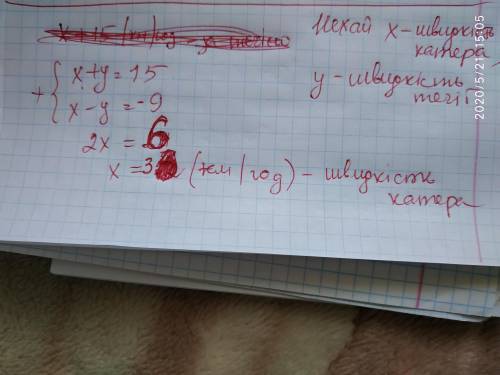 Нехай x - швидкість
катера,
y - швидкість
течії
{ x + y = 15
+
x - y = -9
2x = 6
x = 3 (км/год) - швидкість
катера
2020/5/21 15:05